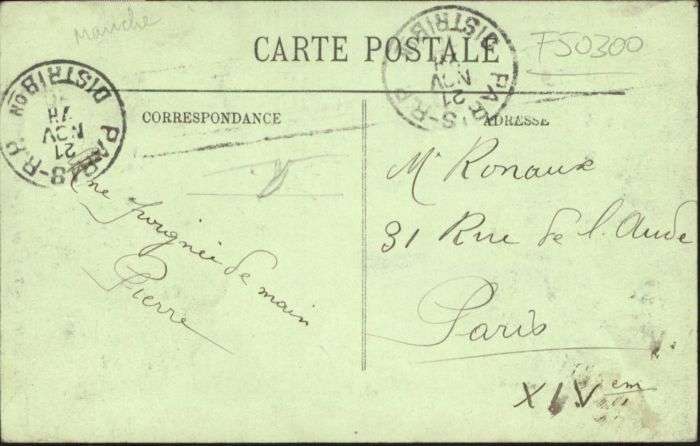 Manche
CARTE POSTALE
F50300
PARIS-R.P.
DISTRIBON
7H
NOV
21
PARIS-R.P.
DISTRIBON
NOV
21
CORRESPONDANCE
ADRESSE
Une poignée de main
Pierre
Mr Ronaux
31 Rue de l'Aude
Paris
XIVem